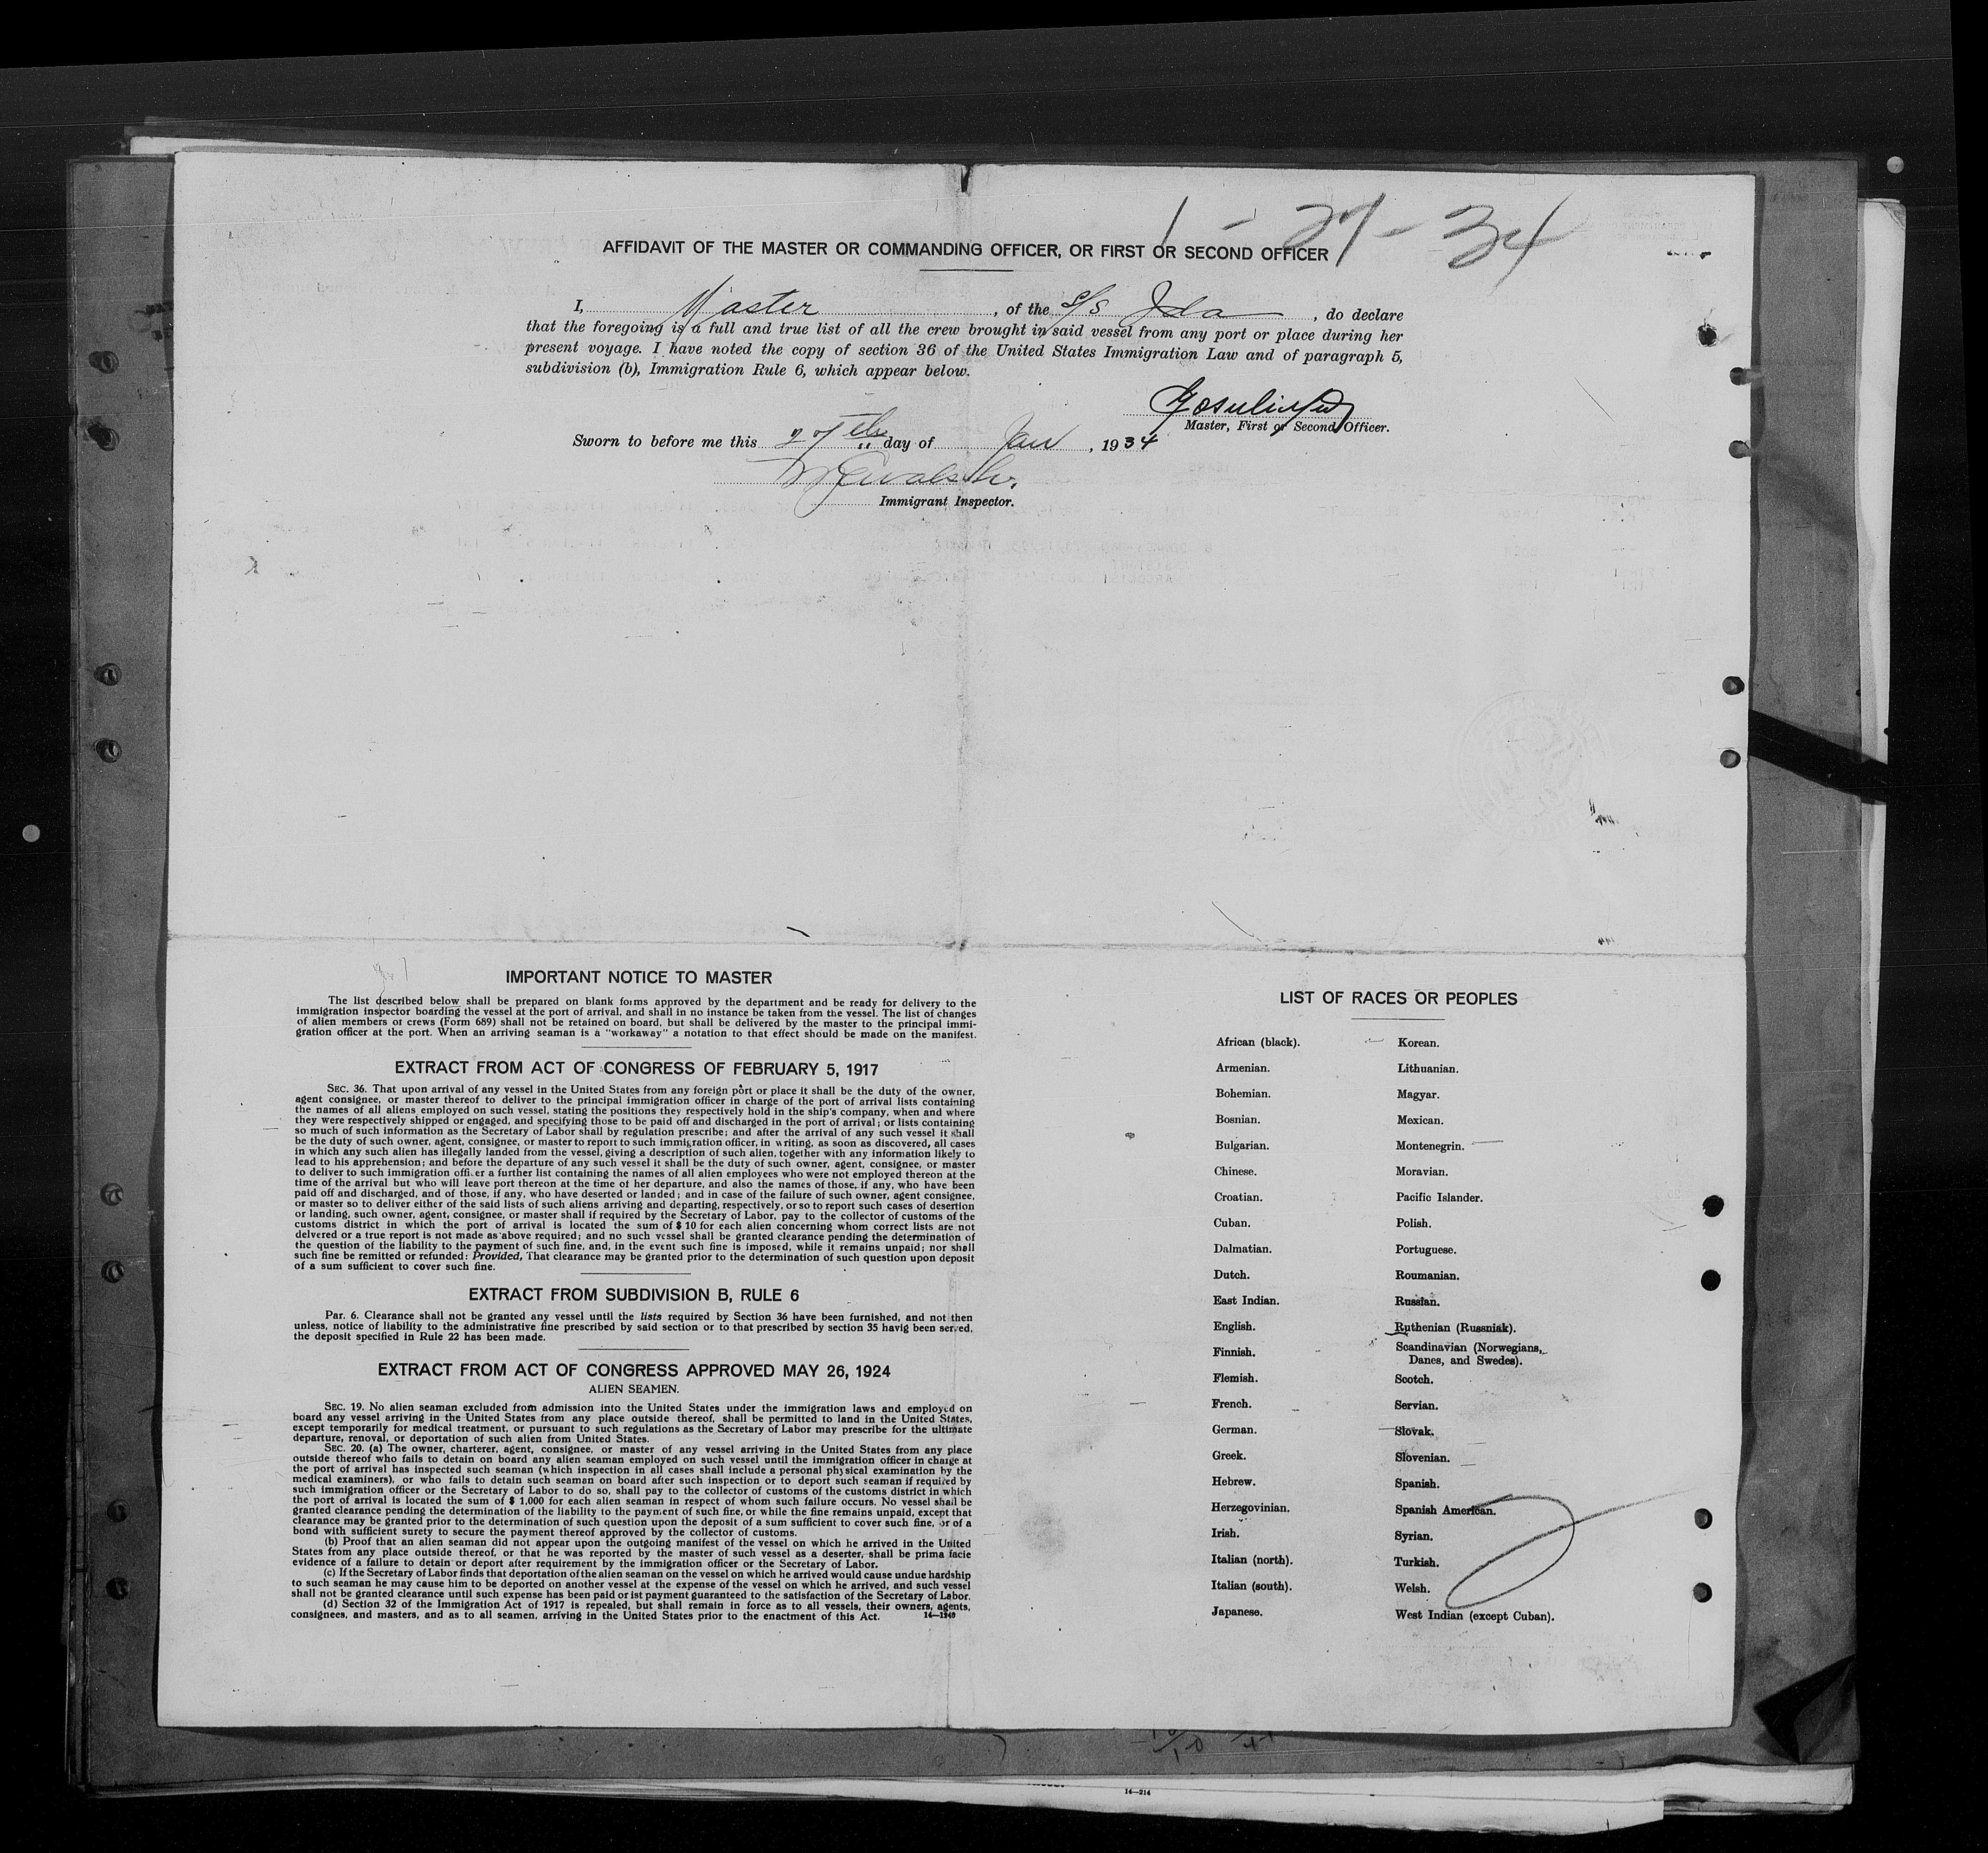 1-27-34
AFFIDAVIT OF THE MASTER OR COMMANDING OFFICER, OR FIRST OR SECOND OFFICER
I, Master, of the S/S Ida, do declare
that the foregoing is a full and true list of all the crew brought in said vessel from any port or place during her
present voyage. I have noted the copy of section 36 of the United States Immigration Law and of paragraph 5,
subdivision (b), Immigration Rule 6, which appear below.
Master, First or Second Officer.
Sworn to before me this 27th day of Jan, 1934
Immigrant Inspector.
IMPORTANT NOTICE TO MASTER
The list described below shall be prepared on blank forms approved by the department and be ready for delivery to the
immigration inspector boarding the vessel at the port of arrival, and shall in no instance be taken from the vessel. The list of changes
of alien members or crews (Form 689) shall not be retained on board, but shall be delivered by the master to the principal immi-
gration officer at the port. When an arriving seaman is a "workaway" a notation to that effect should be made on the manifest.
EXTRACT FROM ACT OF CONGRESS OF FEBRUARY 5, 1917
SEC. 36. That upon arrival of any vessel in the United States from any foreign port or place it shall be the duty of the owner,
agent consignee, or master thereof to deliver to the principal immigration officer in charge of the port of arrival lists containing
the names of all aliens employed on such vessel, stating the positions they respectively hold in the ship's company, when and where
they were respectively shipped or engaged, and specifying those to be paid off and discharged in the port of arrival; or lists containing
so much of such information as the Secretary of Labor shall by regulation prescribe; and after the arrival of any such vessel it shall
be the duty of such owner, agent, consignee, or master to report to such immigration officer, in writing, as soon as discovered, all cases
in which any such alien has illegally landed from the vessel, giving a description of such alien, together with any information likely to
lead to his apprehension; and before the departure of any such vessel it shall be the duty of such owner, agent, consignee, or master
to deliver to such immigration officer a further list containing the names of all alien employees who were not employed thereon at the
time of the arrival but who will leave port thereon at the time of her departure, and also the names of those, if any, who have been
paid off and discharged, and of those, if any, who have deserted or landed; and in case of the failure of such owner, agent consignee,
or master so to deliver either of the said lists of such aliens arriving and departing, respectively, or so to report such cases of desertion
or landing, such owner, agent, consignee, or master shall if required by the Secretary of Labor, pay to the collector of customs of the
customs district in which the port of arrival is located the sum of $ 10 for each alien concerning whom correct lists are not
delivered or a true report is not made as above required; and no such vessel shall be granted clearance pending the determination of
the question of the liability to the payment of such fine, and, in the event such fine is imposed, while it remains unpaid; nor shall
such fine be remitted or refunded: Provided, That clearance may be granted prior to the determination of such question upon deposit
of a sum sufficient to cover such fine.
EXTRACT FROM SUBDIVISION B, RULE 6
Par. 6. Clearance shall not be granted any vessel until the lists required by Section 36 have been furnished, and not then
unless, notice of liability to the administrative fine prescribed by said section or to that prescribed by section 35 havig been served,
the deposit specified in Rule 22 has been made.
EXTRACT FROM ACT OF CONGRESS APPROVED MAY 26, 1924
ALIEN SEAMEN.
SEC. 19. No alien seaman excluded from admission into the United States under the immigration laws and employed on
board any vessel arriving in the United States from any place outside thereof, shall be permitted to land in the United States,
except temporarily for medical treatment, or pursuant to such regulations as the Secretary of Labor may prescribe for the ultimate
departure, removal, or deportation of such alien from United States.
SEC. 20. (a) The owner, charterer, agent, consignee, or master of any vessel arriving in the United States from any place
outside thereof who fails to detain on board any alien seaman employed on such vessel until the immigration officer in charge at
the port of arrival has inspected such seaman (which inspection in all cases shall include a personal physical examination by the
medical examiners), or who fails to detain such seaman on board after such inspection or to deport such seaman if required by
such immigration officer or the Secretary of Labor to do so, shall pay to the collector of customs of the customs district in which
the port of arrival is located the sum of $ 1,000 for each alien seaman in respect of whom such failure occurs. No vessel shall be
granted clearance pending the determination of the liability to the payment of such fine, or while the fine remains unpaid, except that
clearance may be granted prior to the determination of such question upon the deposit of a sum sufficient to cover such fine, or of a
bond with sufficient surety to secure the payment thereof approved by the collector of customs.
(b) Proof that an alien seaman did not appear upon the outgoing manifest of the vessel on which he arrived in the United
States from any place outside thereof, or that he was reported by the master of such vessel as a deserter, shall be prima facie
evidence of a failure to detain or deport after requirement by the immigration officer or the Secretary of Labor.
(c) If the Secretary of Labor finds that deportation of the alien seaman on the vessel on which he arrived would cause undue hardship
to such seaman he may cause him to be deported on another vessel at the expense of the vessel on which he arrived, and such vessel
shall not be granted clearance until such expense has been paid or ist payment guaranteed to the satisfaction of the Secretary of Labor.
(d) Section 32 of the Immigration Act of 1917 is repealed, but shall remain in force as to all vessels, their owners, agents,
consignees, and masters, and as to all seamen, arriving in the United States prior to the enactment of this Act. 14—1240
LIST OF RACES OR PEOPLES
African (black).
Armenian.
Bohemian.
Bosnian.
Bulgarian.
Chinese.
Croatian.
Cuban.
Dalmatian.
Dutch.
East Indian.
English.
Finnish.
Flemish.
French.
German.
Greek.
Hebrew.
Herzegovinian.
Irish.
Italian (north).
Italian (south).
Japanese.
Korean.
Lithuanian.
Magyar.
Mexican.
Montenegrin.
Moravian.
Pacific Islander.
Polish.
Portuguese.
Roumanian.
Russian.
Ruthenian (Russniak).
Scandinavian (Norwegians,
Danes, and Swedes).
Scotch.
Servian.
Slovak.
Slovenian.
Spanish.
Spanish American.
Syrian.
Turkish.
Welsh.
West Indian (except Cuban).
14—214